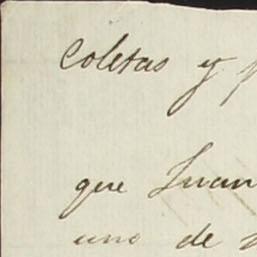 Coletas y
que Juan
uno de